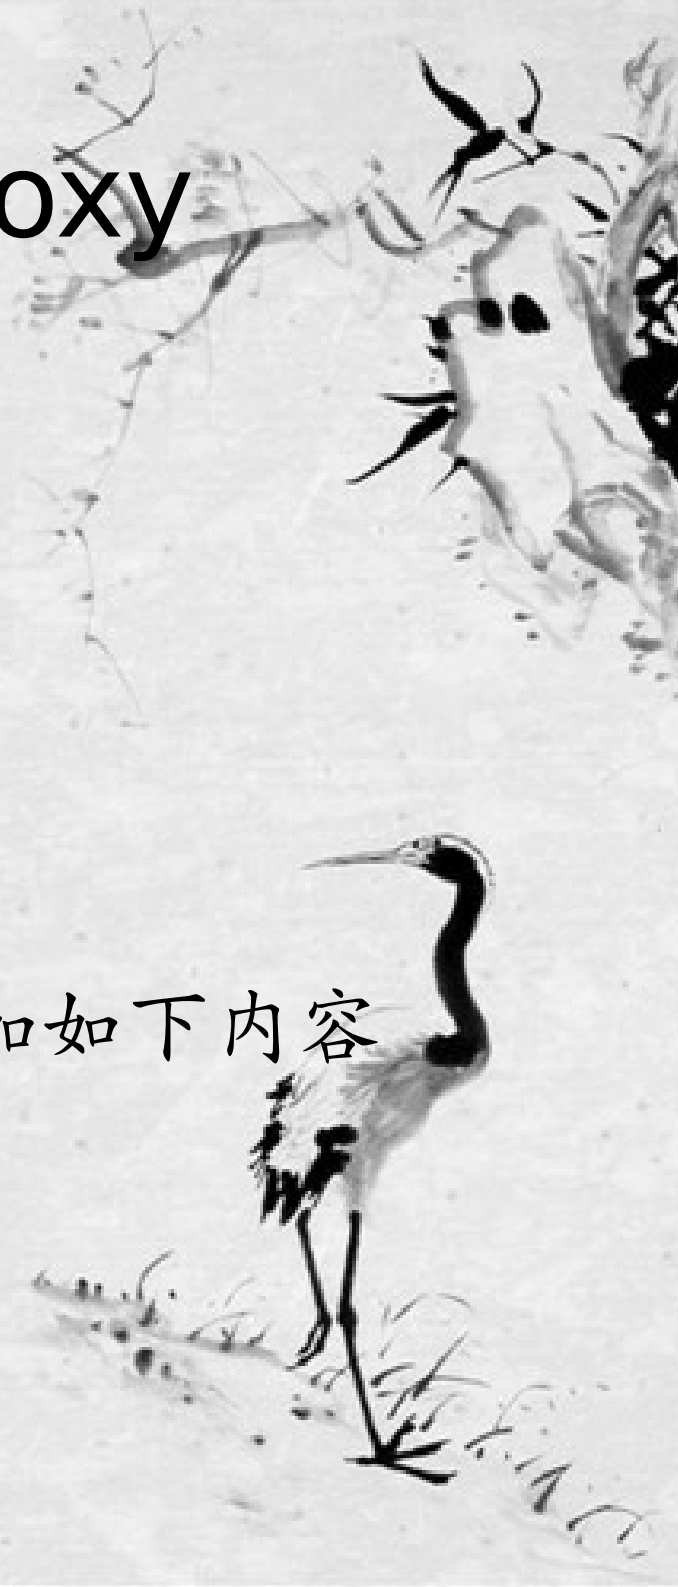 oxy
如下内容